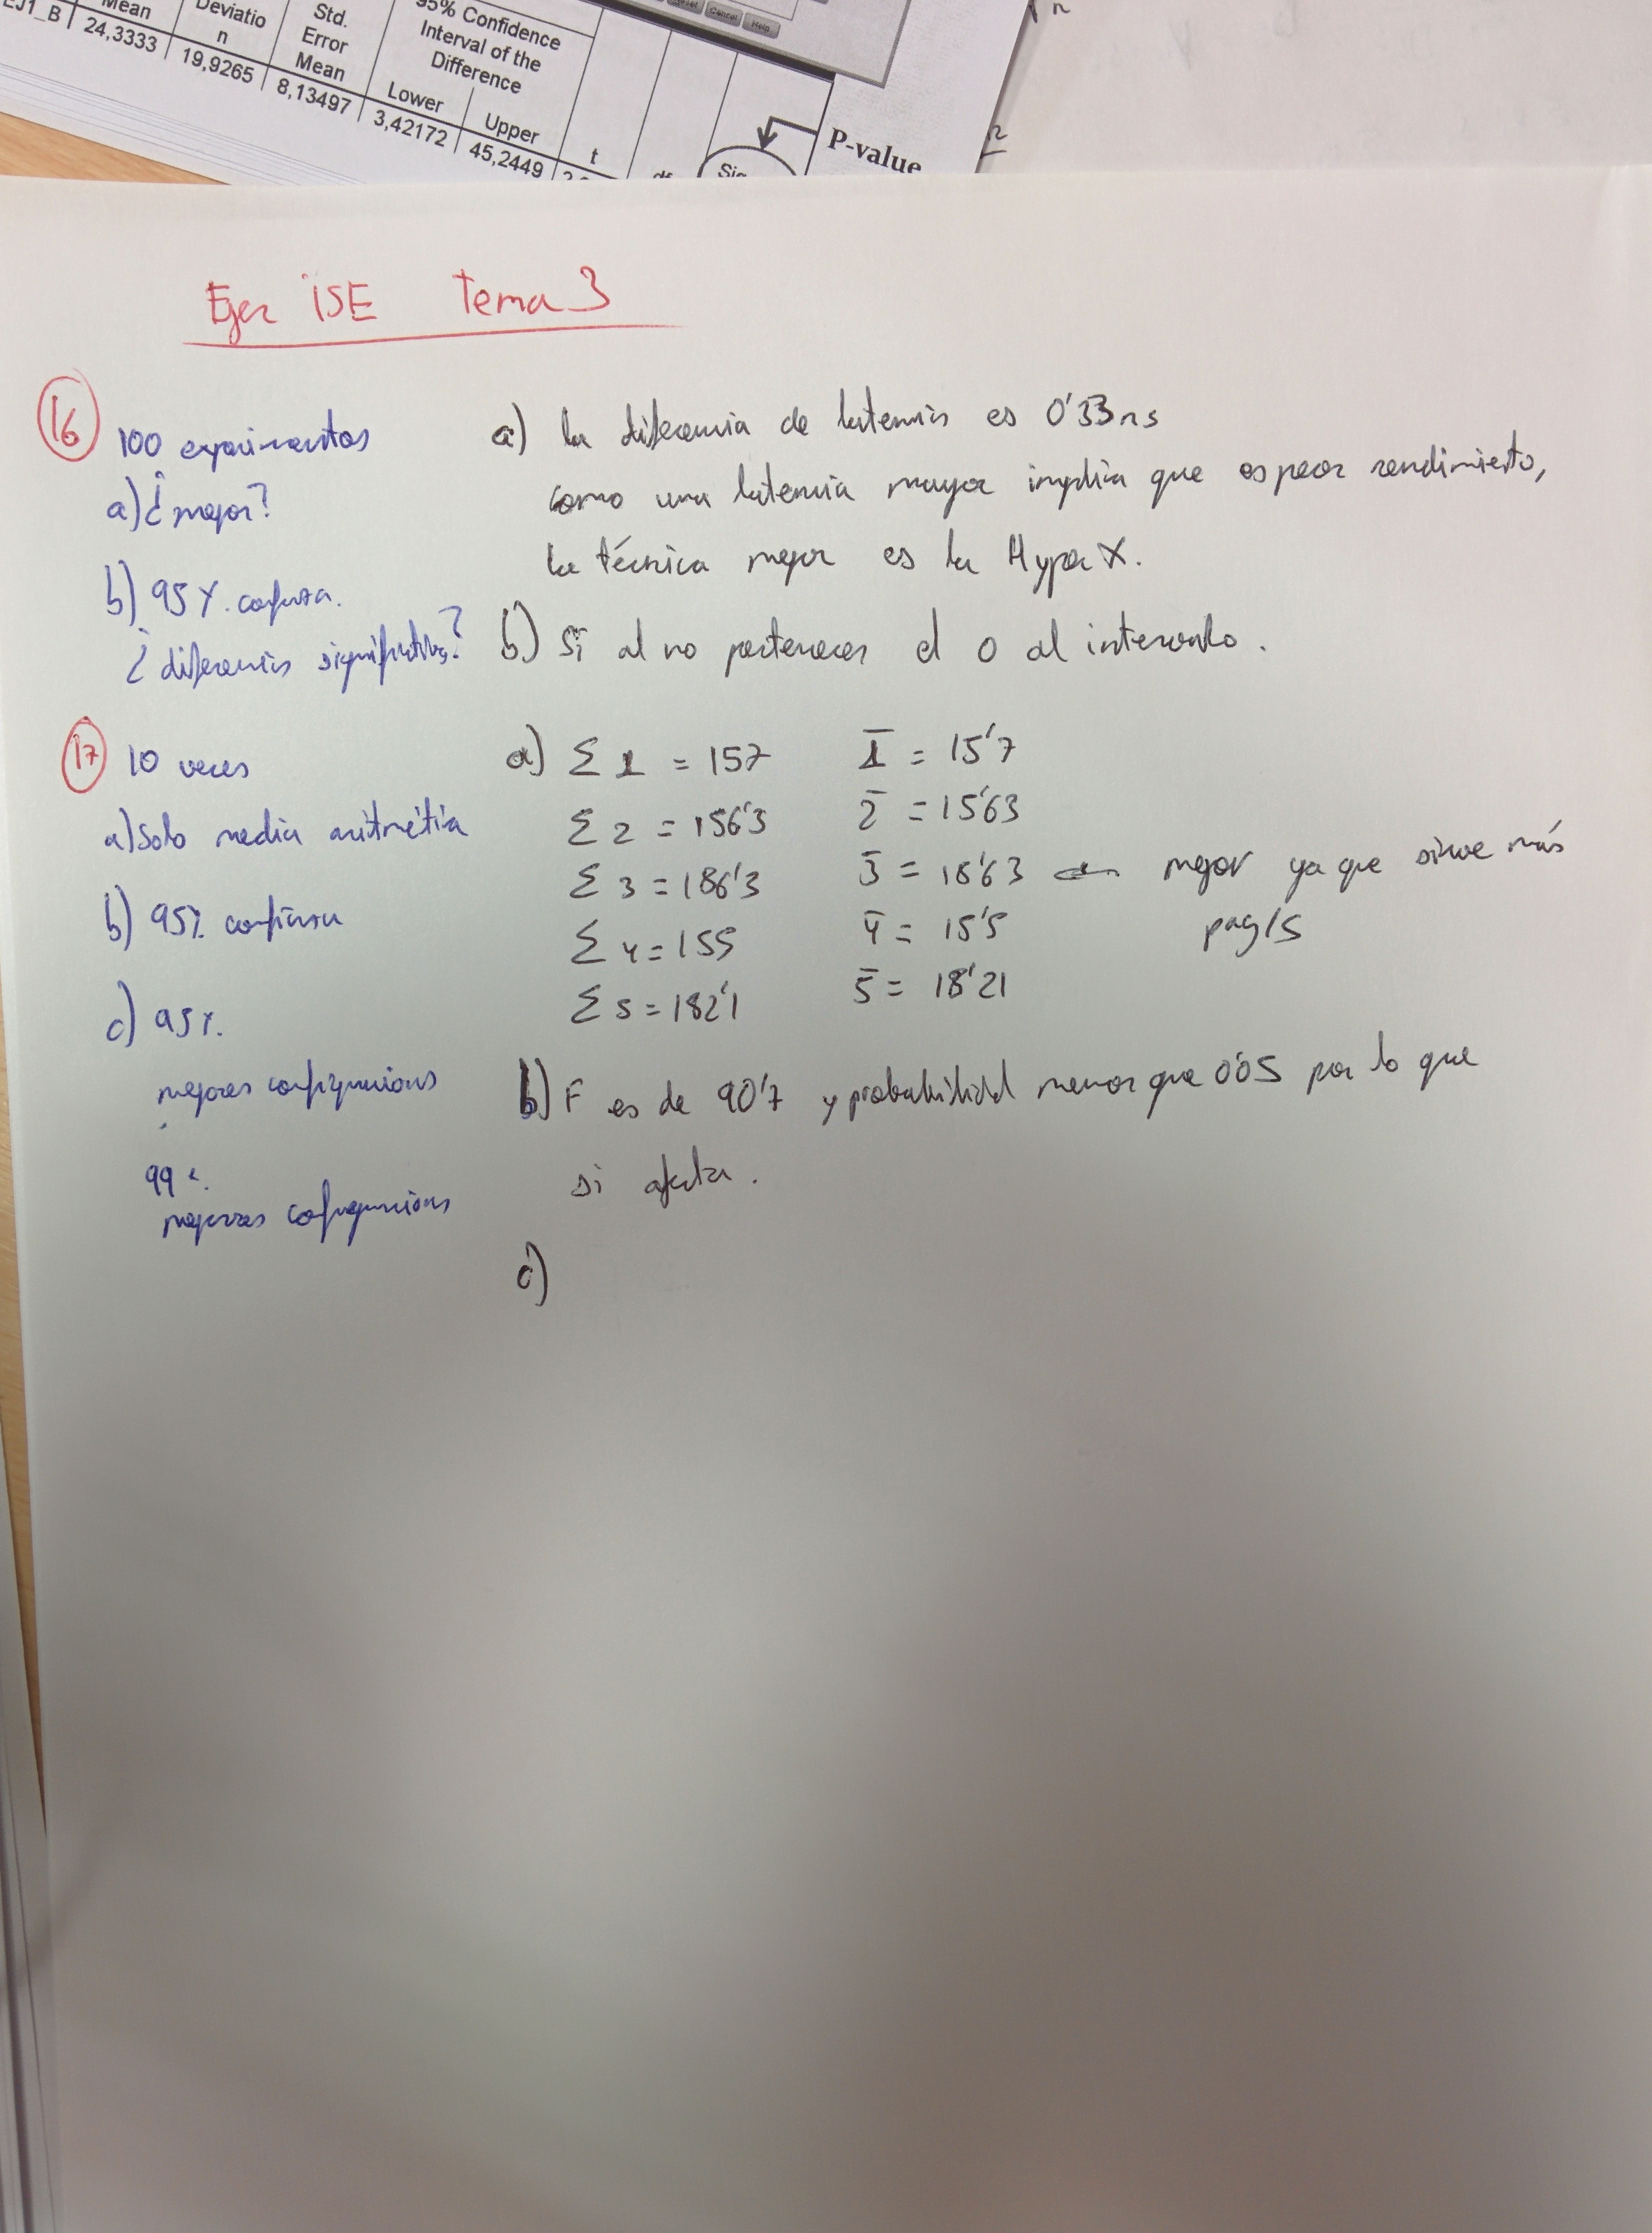 EJ1_B
Mean
24,3333
Deviatio
n
19,9265
Std.
Error
Mean
8,13497
95% Confidence
Interval of the
Difference
Lower
3,42172
Upper
45,2449
t
df
Cancel
Help
P-value
Ejer ISE Tema 3
16
100 experimentos
a) ¿mejor?
b) 95%. confianza.
¿diferencias significativas?
a) la diferencia de latencia es 0'33ns
como una latencia mayor implica que es peor rendimiento,
la técnica mejor es la HyperX.
b) Si al no pertenecer el 0 al intervalo.
17
10 veces
a) Solo media aritmética
b) 95% confianza
c) 95%.
mejores configuracions
99%.
mejores configuracions
a) Σ 1 = 157 1̄ = 15'7
Σ 2 = 156'3 2̄ = 15'63
Σ 3 = 186'3 3̄ = 18'63 ← mejor ya que sirve más
pag/s
Σ 4 = 155 4̄ = 15'5
Σ 5 = 182'1 5̄ = 18'21
b) F es de 90'7 y probabilidad menor que 0'05 por lo que
si afecta.
c)